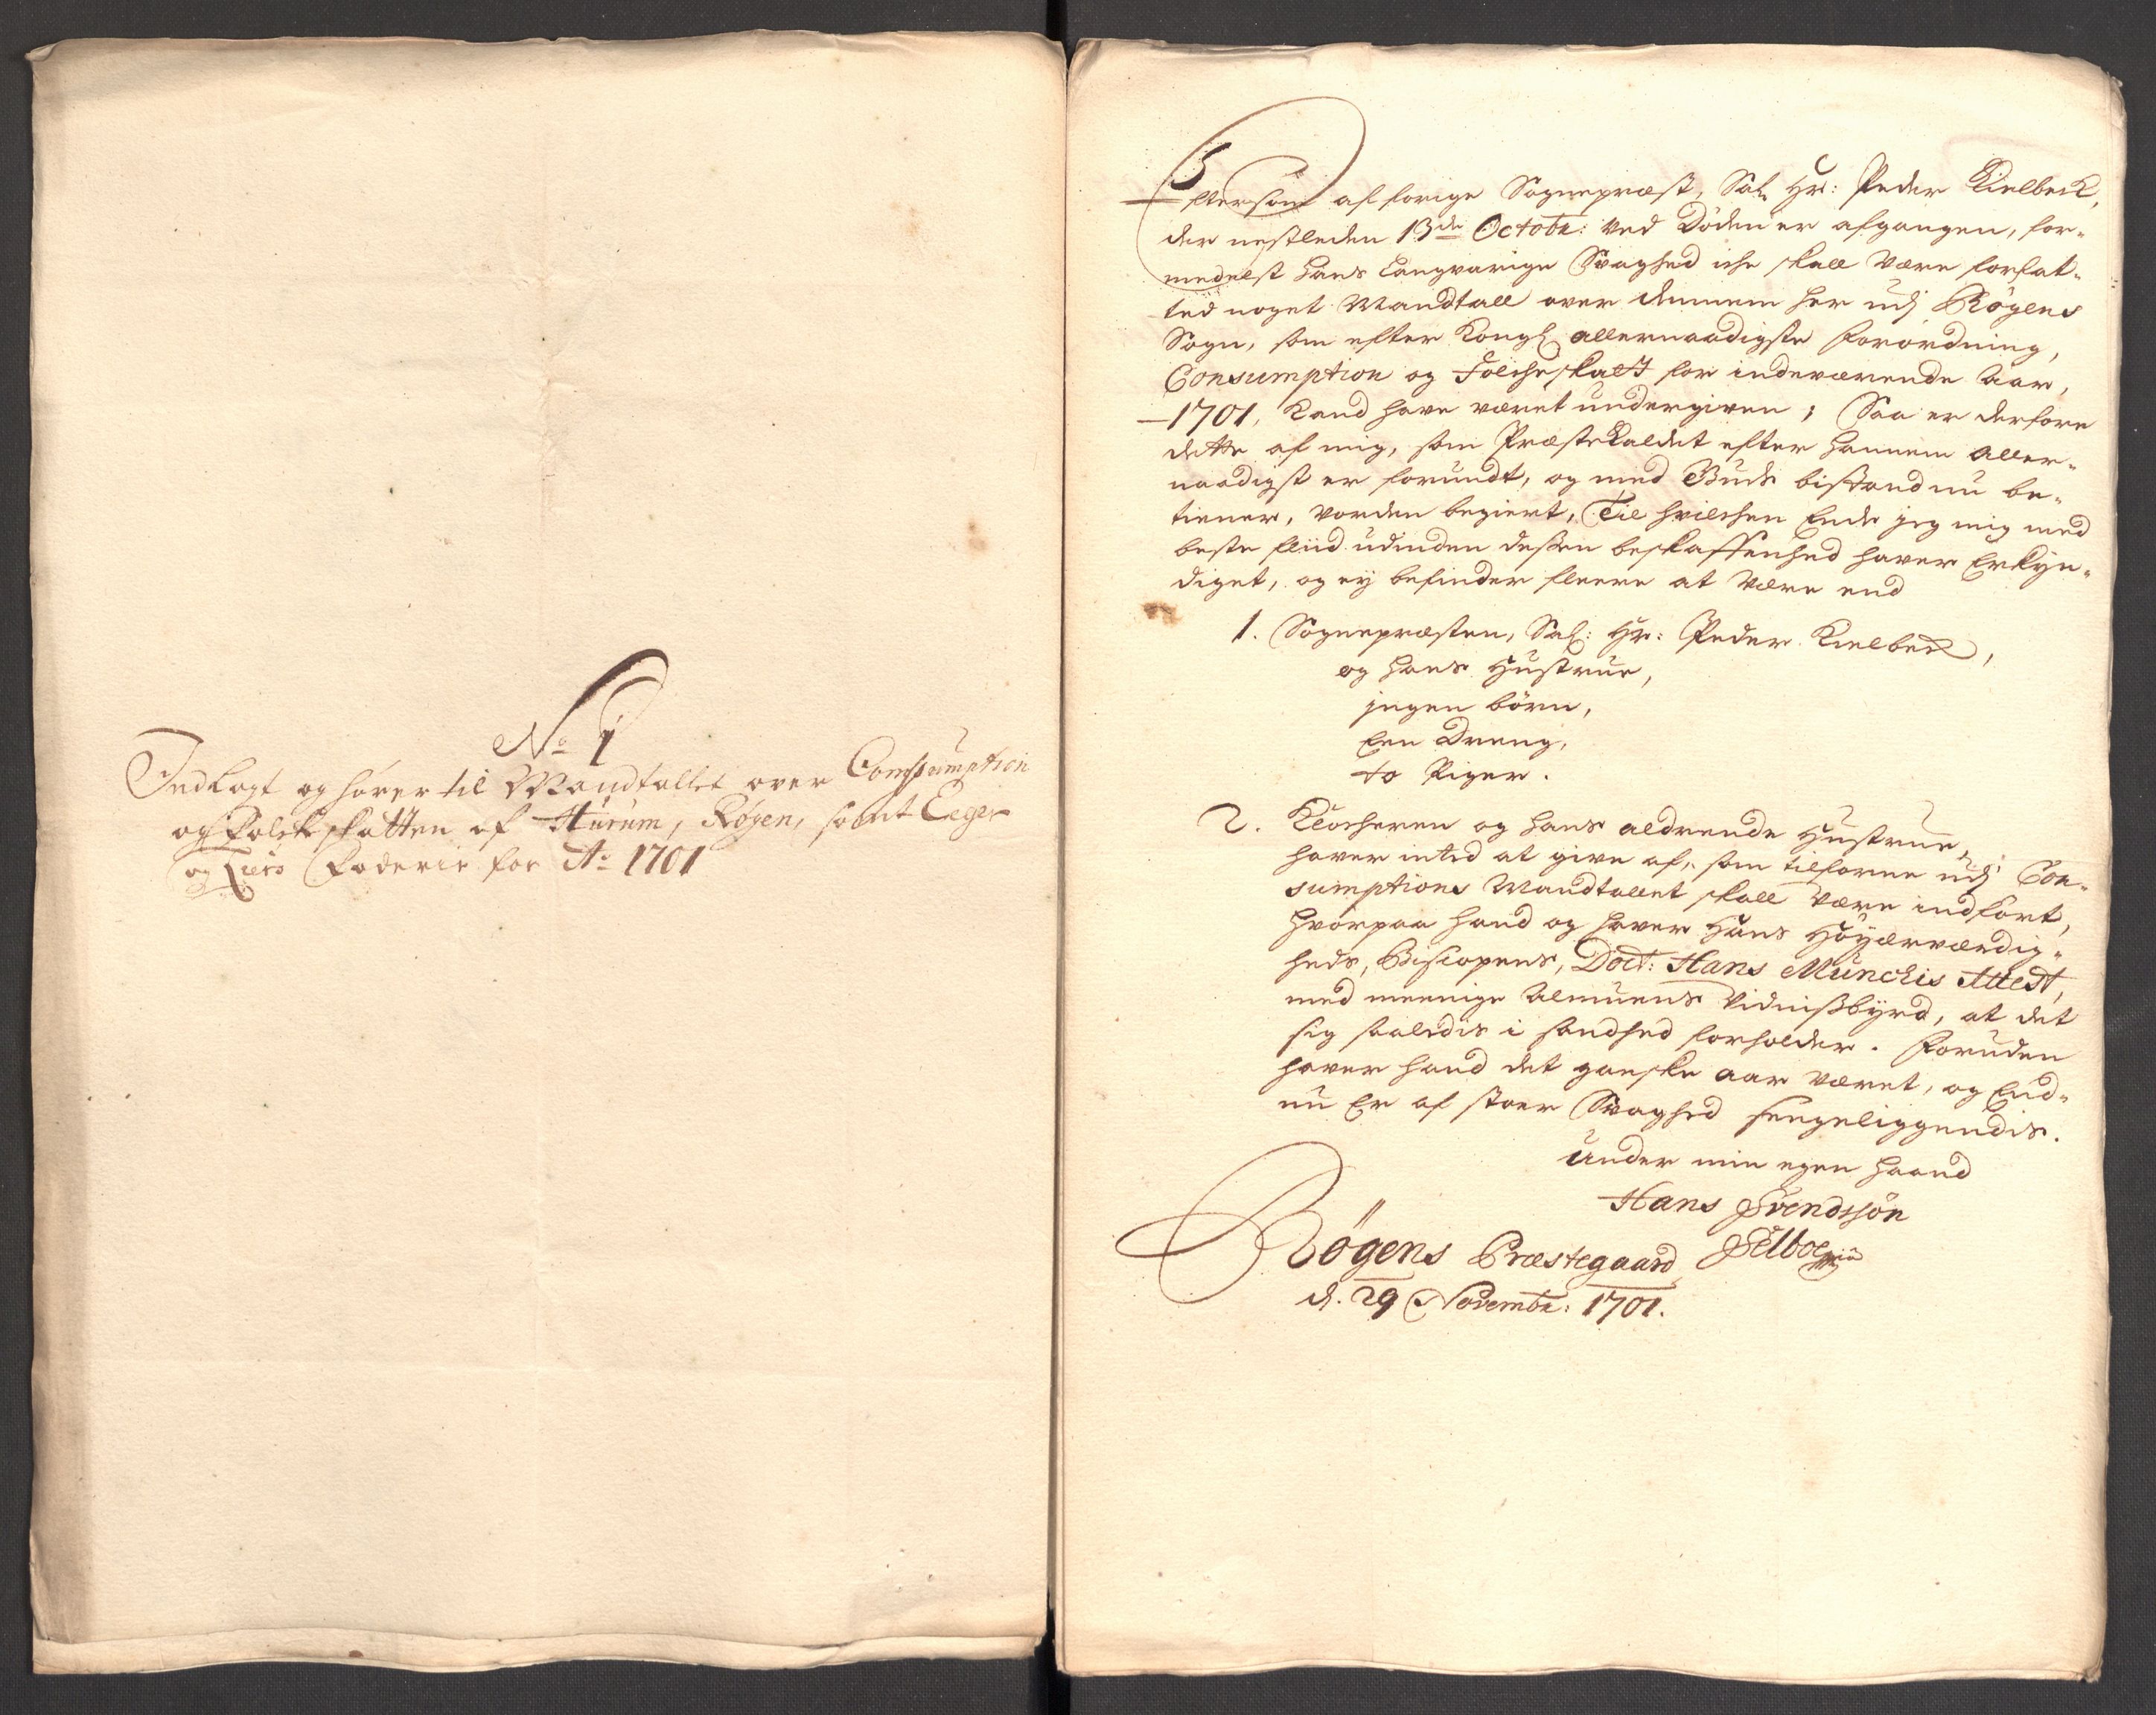 No 1
Indlagt og hörer til Mandtallet over Consumption
og Folckeskatten af Hurum, Röyen, samt Eeger
og Foderie for Ao 1701
Eftersom af forige Sognepræst, Sal. Hr: Peder Kielbeck,
der nestleden 13de Octobr: ved Döden er afgangen, for-
medelst hans langvarige Svaghed iche skall være forfat-
ted noget Mandtall over dennem her udj Rögens
Sogn, som efter Kongl. allernaadigste Forordning,
Consumption og Folcheskatt for indeværende Aar,
1701, kand have været undergiven; Saa er derfore
dette af mig, som Præstekaldet efter hannem aller-
naadigst er forundt, og med Guds bistand nu be-
tiener, vorden begiert, Til hvilchen Ende jeg mig med
beste fliid udinden dessen beskaffenhed haver Erkyn-
diget, og ey befinder fleere at være end
1. Sognepræsten, Sal: Hr: Peder Kielbeck,
og hans Hustrue,
jngen börn,
Een Dreng,
to Piger.
2. Klocheren og hans aldrende Hustrue,
haver inted at give af, som tilforne udj Con-
sumptions Mandtallet skall være indfört,
hvorpaa hand og haver Hans Höyærværdig-
heds, Biscopens, Doct: Hans Munchis Attest,
med meenige Almuens Vidnißbyrd, at det
sig saaledis i sandhed forholder. Foruden
haver hand det ganske aar været, og End-
nu Er af stoer Svaghed sengeliggendis.
Under min egen haand
Hans Svendssön
Sælboe
Rögens Præstegaard
d. 29 Novembr: 1701.